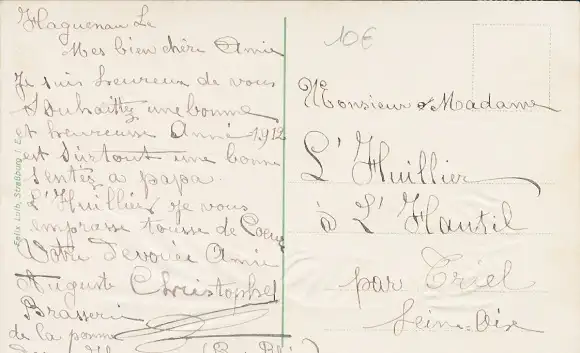 Haguenau Le
Mes bien chère Amie
Je suis heureux de vous
Souhaittez une bonne
et heureuse Anné 1912
est Surtout une bonne
Sentez a papa.
L'Huillier je vous
emprasse tousse de Coeur
Votre Devouée Amie
Auguste Christophel
Brasserie
de la pomme
10€
Monsieur & Madame
L'Huillier
à L'Hautil
par Triel
Seine-Oise
Felix Luib, Strasbourg i. Els.